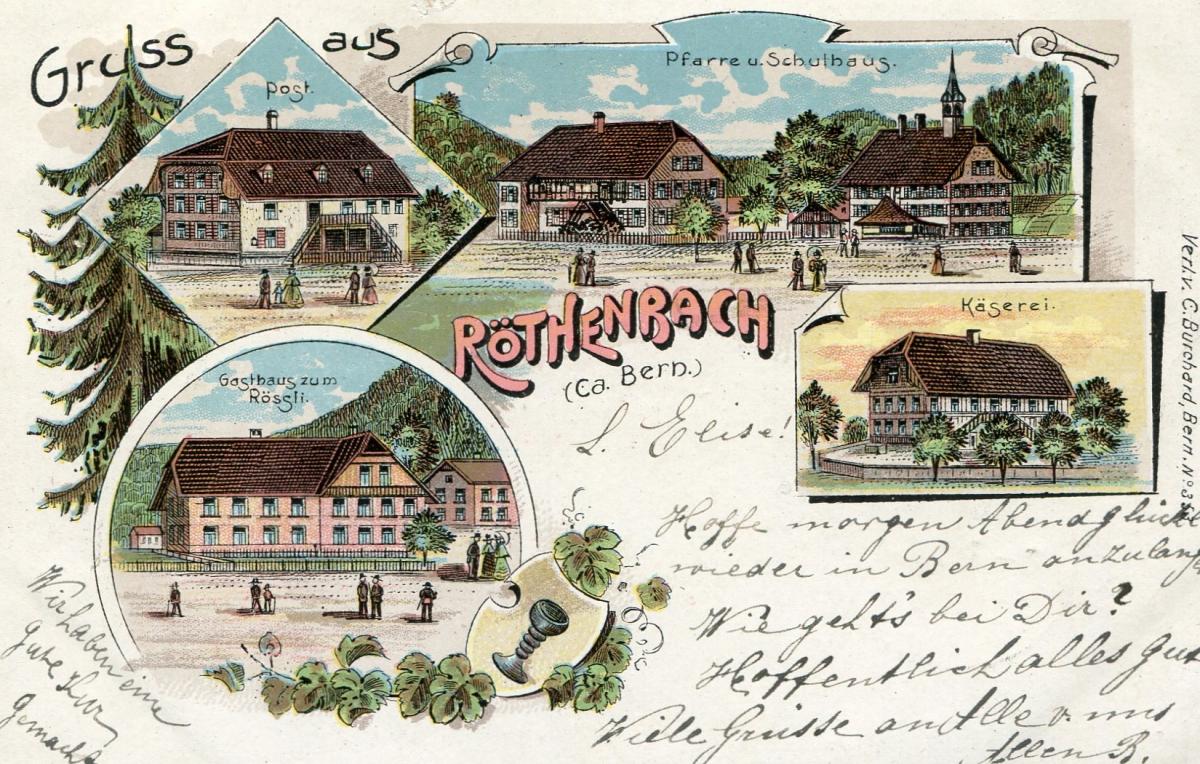 Gruss aus
Post.
Pfarre u. Schulhaus.
RÖTHENBACH
(Ca. Bern.)
Käserei.
Gasthaus zum
Rössli.
Verl. v. C. Burchard, Bern. Nº 3
L. Elise!
Hoffe morgen Abend glück
wieder in Bern anzulang
Wie geht's bei Dir?
Hoffentlich alles gut
Viele Grüsse an Alle v. uns
Allen B.
Wir haben eine
gute
gemacht